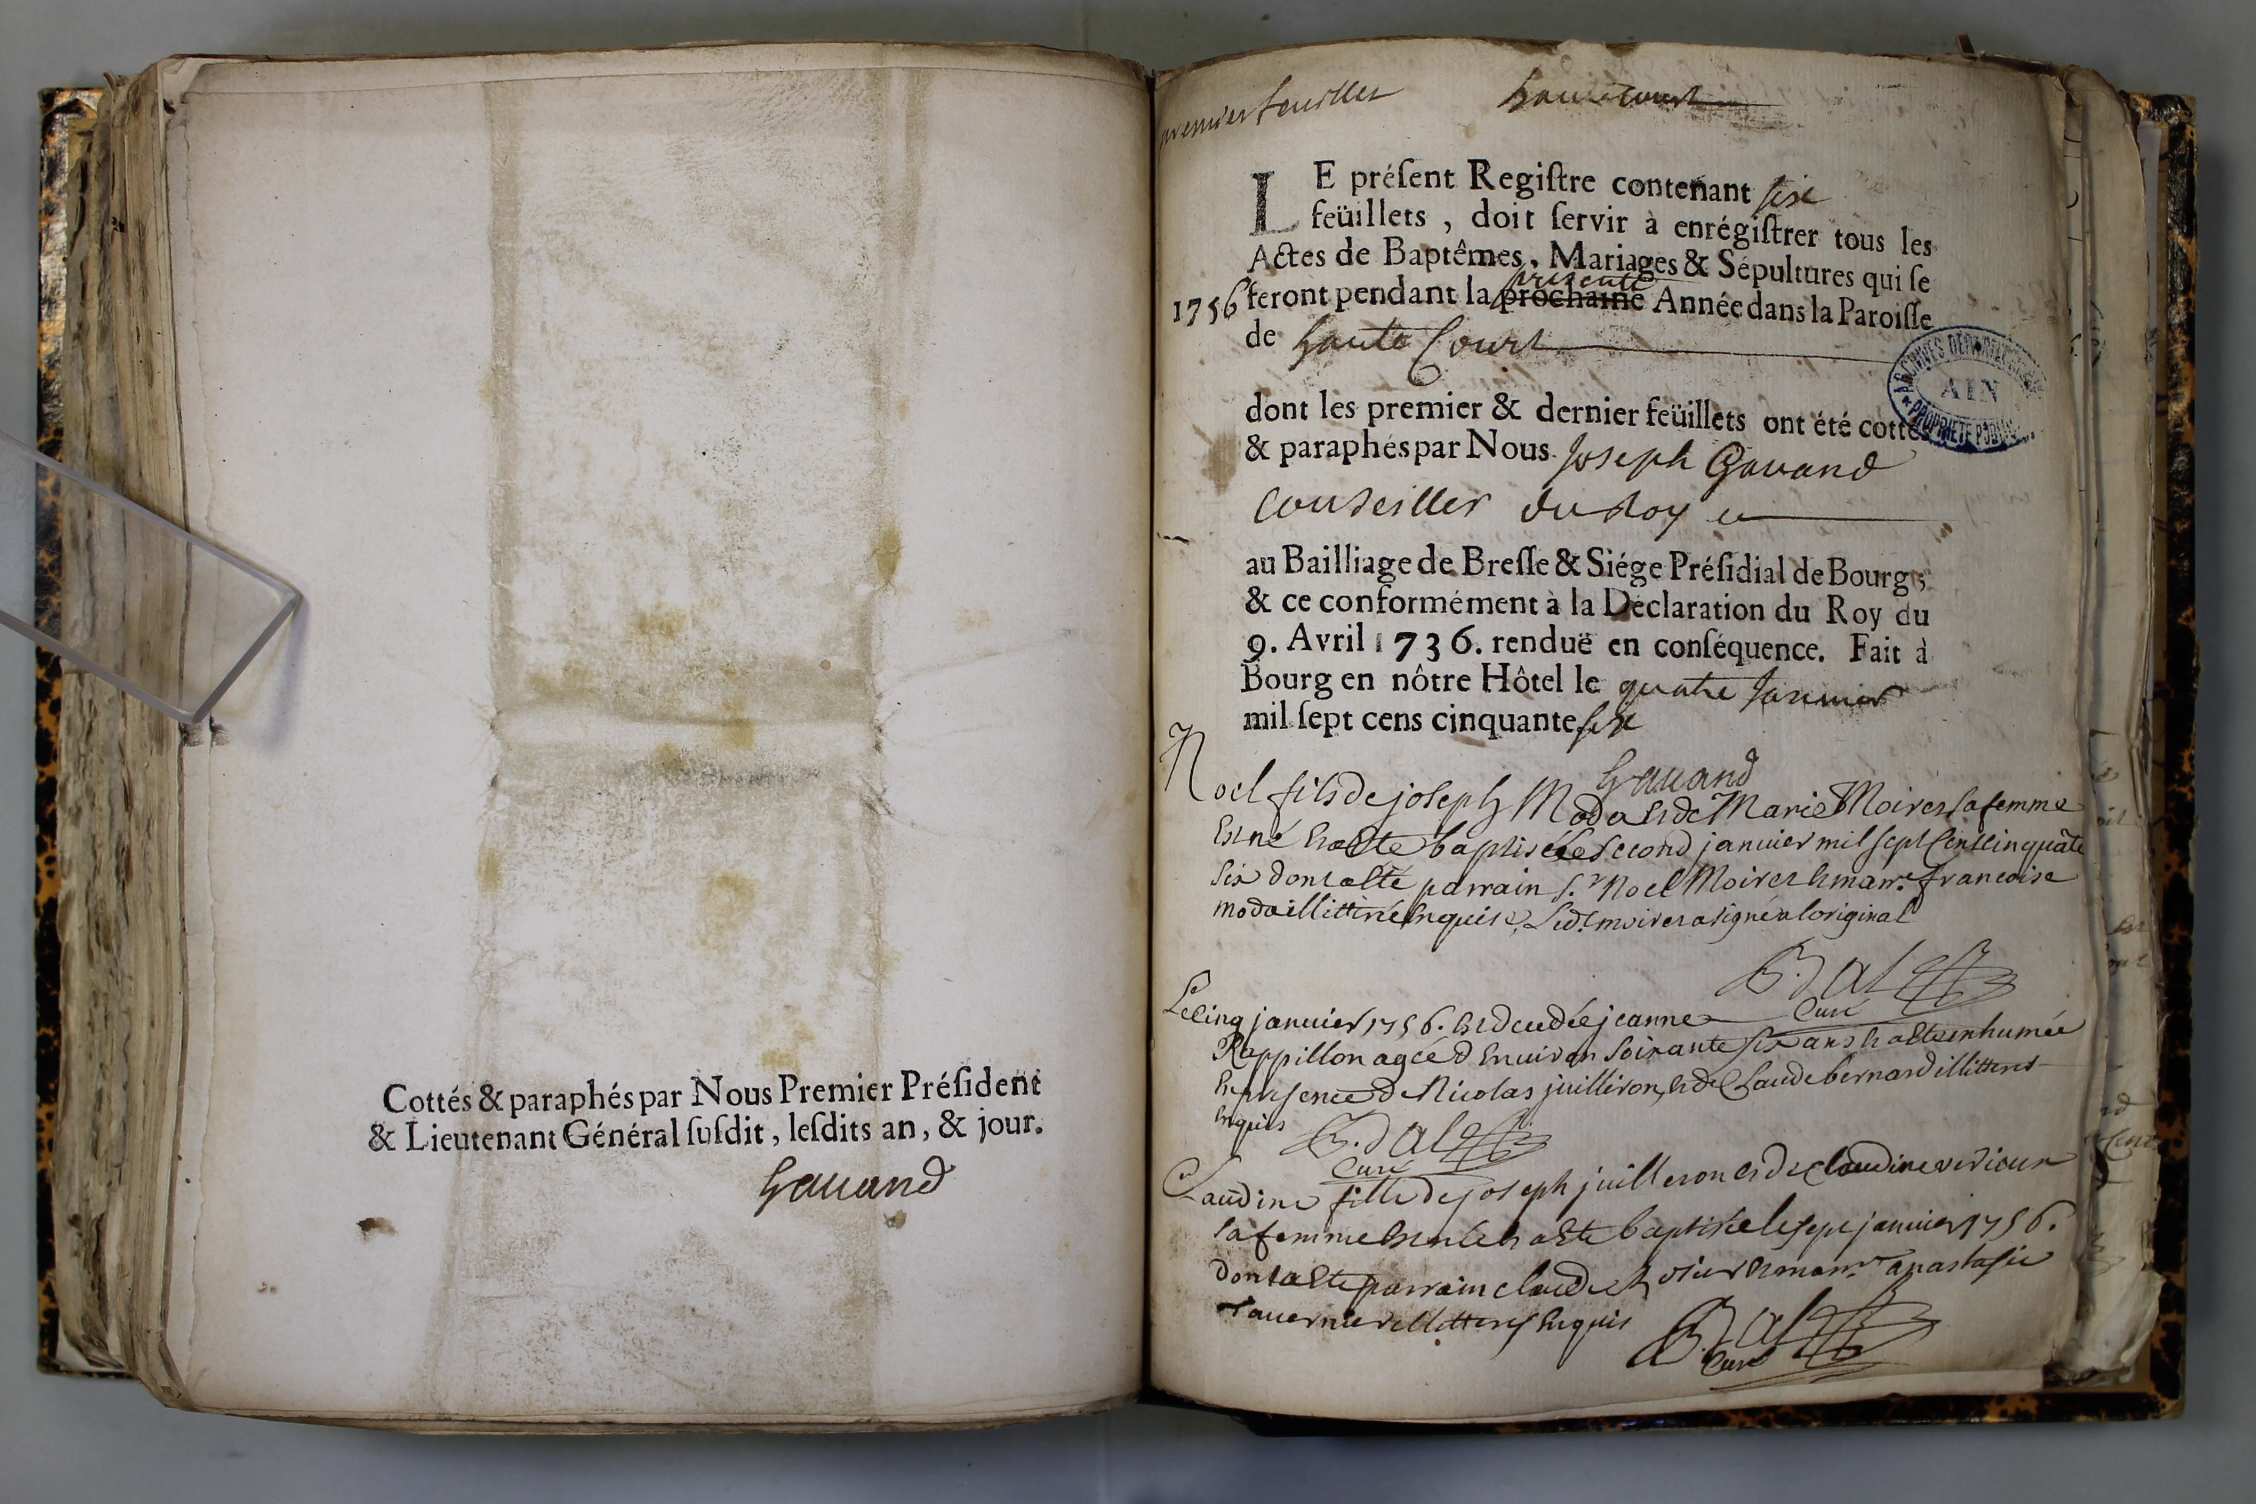 Cottés & paraphés par Nous Premier Préſident
& Lieutenant Général ſuſdit, leſdits an, & jour.
Gauand
premier feuillet hautecourt
LE préſent Regiſtre contenant six
feüillets, doit ſervir à enrégiſtrer tous les
Actes de Baptêmes, Mariages & Sépultures qui ſe
presente
1756 feront pendant la prochaine Année dans la Paroiſſe
de haute Court
ARCHIVES DÉPARTEMENTALES
AIN
PROPRIETE PUBLIQUE
dont les premier & dernier feüillets ont été cottés
& paraphés par Nous Joseph Gauand
Conseiller du Roy
au Bailliage de Breſſe & Siége Préſidial de Bourg,
& ce conformément à la Déclaration du Roy du
9. Avril 1736. renduë en conſéquence. Fait à
Bourg en nôtre Hôtel le quatre Januier
mil ſept cens cinquante six
Gauand
Noel fils de joseph Moda et de Marie Moiret sa femme
est né et a esté baptisé le second januier mil sept Cent cinquãte
six dont a esté parrain s.r Noel Moiret et mar.e francoise
moda illittiré enquise, Led. moiret a signé a loriginal
B. dalex
Curé
Le cinq januier 1756. est decedée jeanne
Rappillon ageé d enuiron soixante six ans et a esté inhumée
en presence de Nicolas juilleron, et de Claude bernard illitteres
enquis B. dalex
Curé
Claudine fille de joseph juilleron et de claudine
sa femme est née et a esté baptisée le sept januier 1756.
dont a esté parrain claude et mar.e anastasie
tauernier illitterés enquis B. dalex
Curé